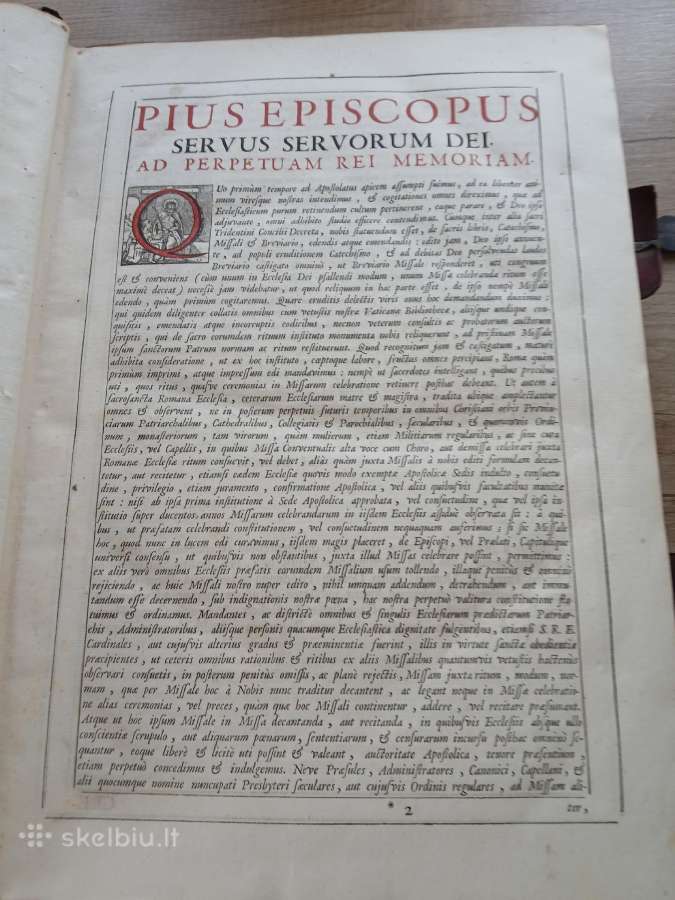 PIUS EPISCOPUS
SERVUS SERVORUM DEI.
AD PERPETUAM REI MEMORIAM.
QUo primùm tempore ad Apostolatus apicem assumpti fuimus, ad ea libenter ani-
mum viresque nostras intendimus, & cogitationes omnes direximus, quæ ad
Ecclesiasticum purum retinendum cultum pertinerent, eaque parare, & Deo ipso
adjuvante, omni adhibito studio efficere contendimus. Cumque inter alia sacri
Tridentini Concilii Decreta, nobis statuendum esset, de sacris libris, Catechismo,
Missali & Breviario, edendis atque emendandis: edito jam, Deo ipso annuen-
te, ad populi eruditionem Catechismo, & ad debitas Deo persolvendas laudes
Breviario castigato omninò, ut Breviario Missale responderet, uti congruum
est & conveniens (cùm unum in Ecclesia Dei psallendi modum, unum Missæ celebrandæ ritum esse
maximè deceat) necesse jam videbatur, ut quod reliquum in hac parte esset, de ipso nempè Missali
edendo, quàm primùm cogitaremus. Quare eruditis delectis viris onus hoc demandandum duximus:
qui quidem diligenter collatis omnibus cum vetustis nostræ Vaticanæ Bibliothecæ, aliisque undique con-
quisitis, emendatis atque incorruptis codicibus, necnon veterum consultis ac probatorum auctorum
scriptis, qui de sacro eorundem rituum instituto monumenta nobis reliquerunt, ad pristinam Missale
ipsum sanctorum Patrum normam ac ritum restituerunt. Quod recognitum jam & castigatum, matura
adhibita consideratione, ut ex hoc instituto, cæptoque labore, fructus omnes percipiant, Romæ quàm
primùm imprimi, atque impressum edi mandavimus: nempè ut sacerdotes intelligant, quibus precibus
uti, quos ritus, quasve ceremonias in Missarum celebratione retinere posthac debeant. Ut autem à
sacrosancta Romana Ecclesia, ceterarum Ecclesiarum matre & magistra, tradita ubique amplectantur
omnes & observent, ne in posterum perpetuis futuris temporibus in omnibus Christiani orbis Provin-
ciarum Patriarchalibus, Cathedralibus, Collegiatis & Parochialibus, sæcularibus, & quorumvis Ordi-
num, monasteriorum, tam virorum, quàm mulierum, etiam Militiarum regularibus, ac sine cura
Ecclesiis, vel Capellis, in quibus Missa Conventualis alta voce cum Choro, aut demissa celebrari juxta
Romanæ Ecclesiæ ritum consuevit, vel debet, aliàs quàm juxta Missalis à nobis editi formulam decan-
tetur, aut recitetur, etiamsi eædem Ecclesiæ quovis modo exemptæ Apostolicæ Sedis indulto, consuetu-
dine, privilegio, etiam juramento, confirmatione Apostolica, vel aliis quibusvis facultatibus munitæ
sint: nisi ab ipsa prima institutione à Sede Apostolica approbata, vel consuetudine, quæ vel ipsa in-
stitutio super ducentos annos Missarum celebrandarum in iisdem Ecclesiis assiduè observata sit: à qui-
bus, ut præfatam celebrandi constitutionem, vel consuetudinem nequaquam auferimus; si sic Missale
hoc, quod nunc in lucem edi curavimus, iisdem magis placeret, de Episcopi, vel Prælati, Capitulique
universi consensu, ut quibusvis non obstantibus, juxta illud Missas celebrare possint, permittimus:
ex aliis verò omnibus Ecclesiis præfatis eorumdem Missalium usum tollendo, illaque penitùs & omninò
rejiciendo, ac huic Missali nostro nuper edito, nihil umquam addendum, detrahendum, aut immu-
tandum esse decernendo, sub indignationis nostræ pœna, hac nostra perpetuò valitura constitutione sta-
tuimus & ordinamus. Mandantes, ac districtè omnibus & singulis Ecclesiarum prædictarum Patriar-
chis, Administratoribus, aliisque personis quacumque Ecclesiastica dignitate fulgentibus, etiamsi S. R. E.
Cardinales, aut cujusvis alterius gradus & præeminentiæ fuerint, illis in virtute sanctæ obedientiæ
præcipientes, ut ceteris omnibus rationibus & ritibus ex aliis Missalibus quantumvis vetustis hactenùs
observari consuetis, in posterum penitùs omissis, ac planè rejectis, Missam juxta ritum, modum, nor-
mam, quæ per Missale hoc à Nobis nunc traditur decantent, ac legant neque in Missæ celebratio-
ne alias ceremonias, vel preces, quàm quæ hoc Missali continentur, addere, vel recitare præsumant.
Atque ut hoc ipsum Missale in Missa decantanda, aut recitanda, in quibusvis Ecclesiis absque ullo
conscientiæ scrupulo, aut aliquarum pœnarum, sententiarum, & censurarum incursu posthac omninò se-
quantur, eoque liberè & licitè uti possint & valeant, auctoritate Apostolica, tenore præsentium,
etiam perpetuò concedimus & indulgemus. Neve Præsules, Administratores, Canonici, Capellani, &
alii quocumque nomine nuncupati Presbyteri sæculares, aut cujusvis Ordinis regulares, ad Missam ali-
* 2 ter,
skelbiu.lt